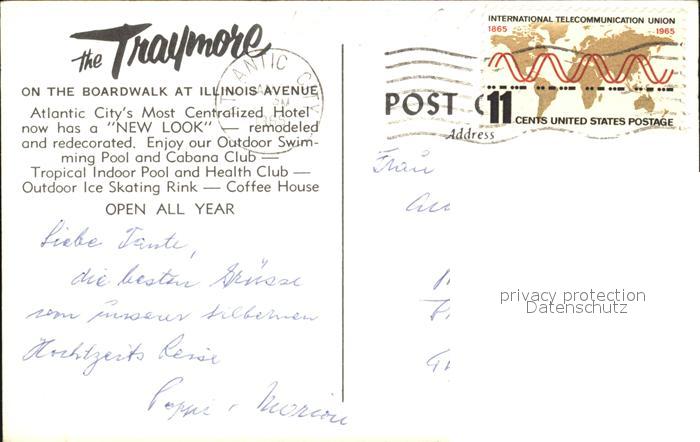 the Traymore
ON THE BOARDWALK AT ILLINOIS AVENUE
Atlantic City's Most Centralized Hotel
now has a "NEW LOOK" — remodeled
and redecorated. Enjoy our Outdoor Swim-
ming Pool and Cabana Club —
Tropical Indoor Pool and Health Club —
Outdoor Ice Skating Rink — Coffee House
OPEN ALL YEAR
Liebe Tante,
die besten Grüsse
von unserer silbernen
Hochtzeits Reise
Marion
ATLANTIC CITY
PM
INTERNATIONAL TELECOMMUNICATION UNION
1865 1965
11 CENTS UNITED STATES POSTAGE
POST C
Address
Frau
privacy protection
Datenschutz